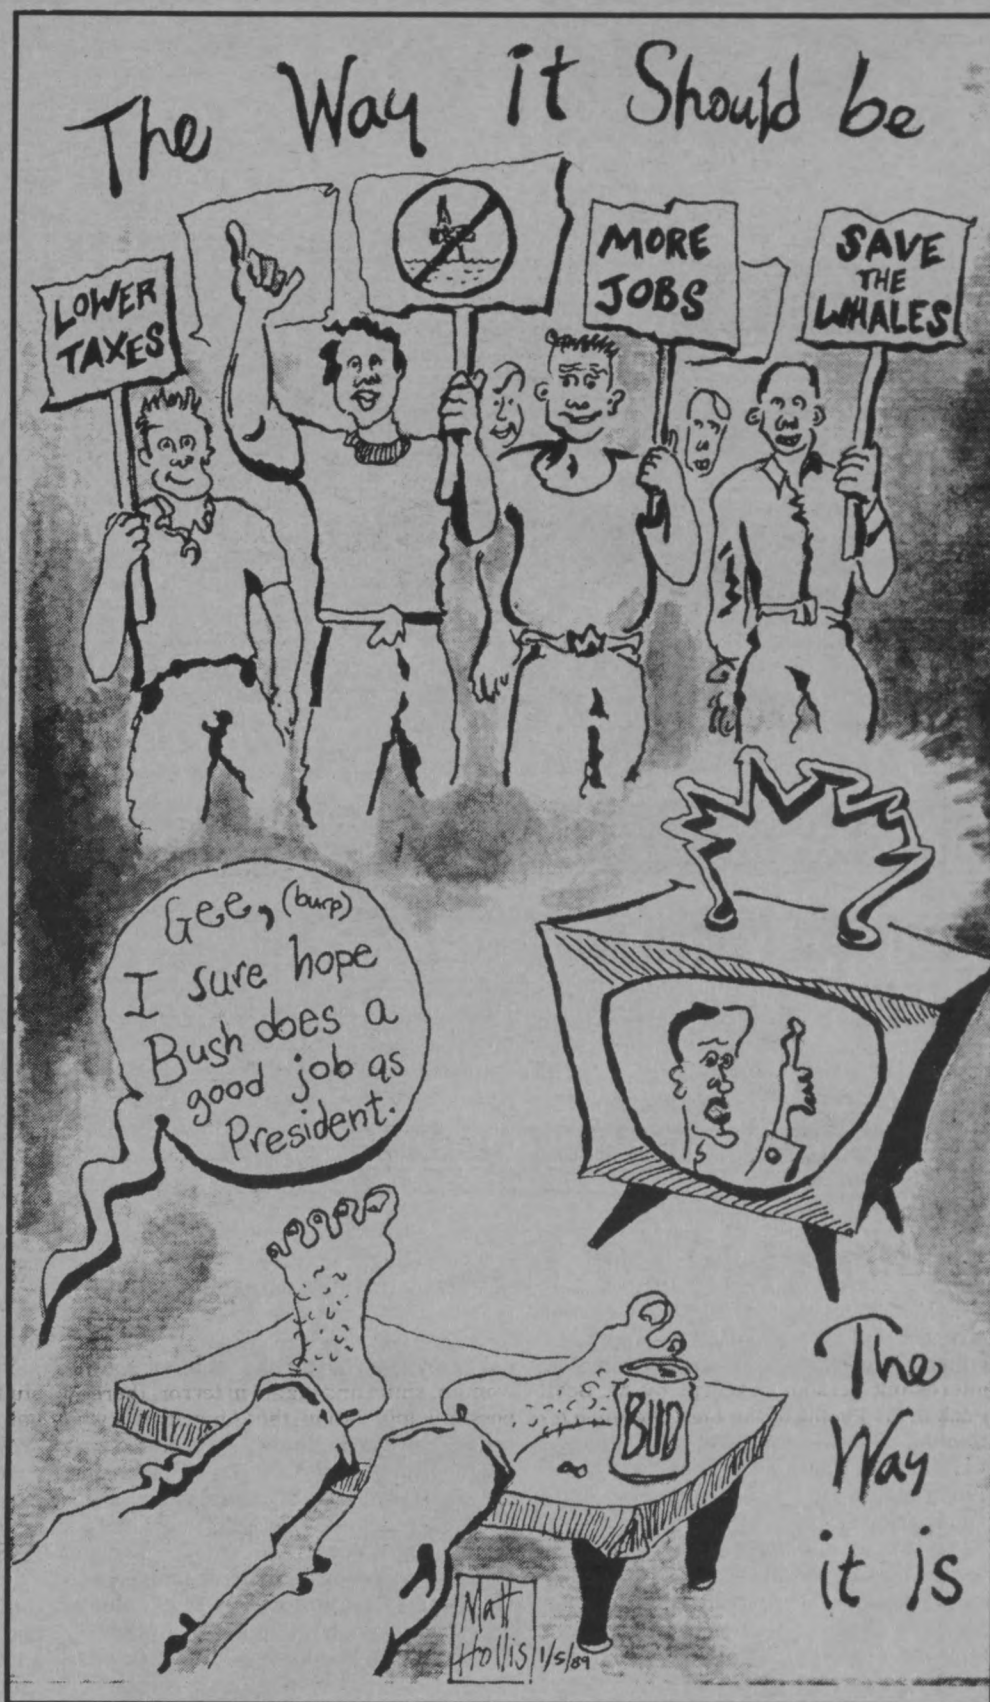 The Way it Should be
LOWER
TAXES
MORE
JOBS
SAVE
THE
WHALES
Gee, (burp)
I sure hope
Bush does a
good job as
President.
BUD
The
Way
it is
Matt
Hollis 1/5/89